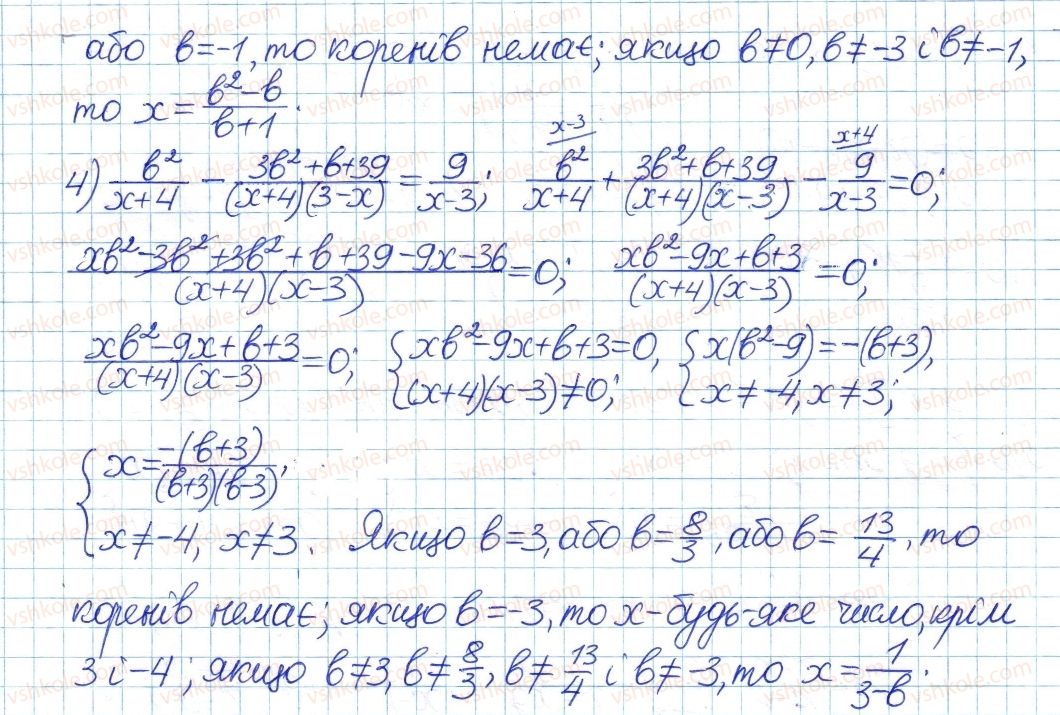 або в=-1, то коренів немає; якщо в≠0, в≠-3 і в≠-1,
то x = (в²-в)/(в+1).
4) в²/(x+4) - (3в²+в+39)/((x+4)(3-x)) = 9/(x-3); x-3 в²/(x+4) + (3в²+в+39)/((x+4)(x-3)) - x+4 9/(x-3) = 0;
(xв²-3в²+3в²+в+39-9x-36)/((x+4)(x-3)) = 0; (xв²-9x+в+3)/((x+4)(x-3)) = 0;
(xв²-9x+в+3)/((x+4)(x-3)) = 0; { xв²-9x+в+3=0, (x+4)(x-3)≠0; { x(в²-9)=-(в+3), x≠-4, x≠3;
{ x = -(в+3)/((в+3)(в-3)),
x≠-4, x≠3. Якщо в=3, або в=8/3, або в=13/4, то
коренів немає; якщо в=-3, то x-будь-яке число, крім
3 і -4; якщо в≠3, в≠8/3, в≠13/4 і в≠-3, то x=1/(3-в).